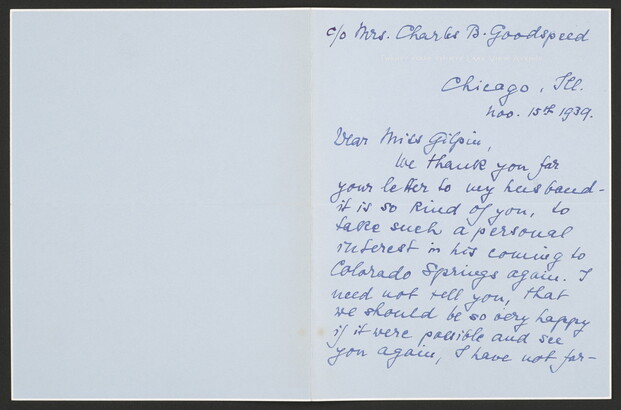 c/o Mrs. Charles B. Goodspeed
Chicago, Ill.
Nov. 15th 1939.
Dear Miss Gilpin,
We thank you for
your letter to my husband -
it is so kind of you, to
take such a personal
interest in his coming to
Colorado Springs again. I
need not tell you, that
we should be so very happy
if it were possible and see
you again, I have not for-